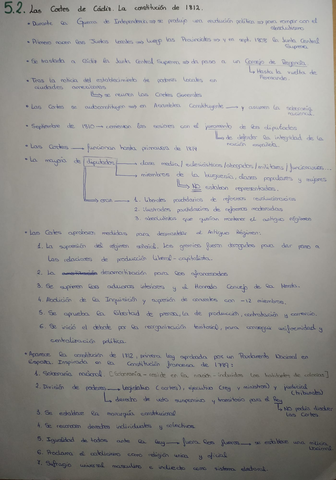 5.2. Las Cortes de Cádiz. La constitución de 1812.
• Durante la Guerra de Independencia se produjo una revolución política que rompió con el absolutismo.
• Primero nacen las Juntas Locales, luego las Provinciales y en sept. 1808 la Junta Central Suprema.
• Se trasladó a Cádiz la Junta Suprema y dio paso a un Consejo de Regencia
↳ Hasta la vuelta de Fernando.
• Tras la noticia del establecimiento de
ciudades americanas.
Cortes Generales
• Las Cortes se autoconstituyen en Asamblea Constituyente → y asumen la soberanía nacional.
• Septiembre de 1810 → comienzan las sesiones con el juramento de los diputados
↳ de defender la integridad de la nación española.
• Las Cortes → funcionan hasta primeros de 1814
• La mayoría de diputados → clase media / eclesiásticos / abogados / militares / funcionarios...
→ miembros de la burguesía, clases populares y mujeres
↳ NO estaban representados.
→ eran 1. liberales partidarios de reformas revolucionarias
2. ilustrados partidarios de reformas moderadas
3. absolutistas que querían mantener el antiguo régimen
• Las Cortes aprueban medidas para desmantelar el Antiguo Régimen:
1. La supresión del régimen señorial. Los gremios fueron derogados para dar paso a las relaciones de producción liberal-capitalista.
2. La desamortización para los afrancesados
3. Se suprimen las aduanas interiores y el Honrado Concejo de la Mesta.
4. Abolición de la Inquisición y supresión de conventos con -12 miembros
5. Se aprueba la libertad de prensa, la de producción, contratación y comercio.
6. Se inició el debate por la reorganización territorial, para conseguir uniformidad y centralización política.
• Aparece la constitución de 1812, primera ley aprobada por un Parlamento Nacional en España. Inspirada en la Constitución francesa de 1791:
1. Soberanía nacional
2. División de poderes → legislativo (cortes), ejecutivo (rey y ministros) y judicial (tribunales)
↳ derecho de veto suspensivo y transitorio para el Rey
↳ NO podía disolver las Cortes
3. Se establece la monarquía constitucional
4. Se reconocen derechos individuales y colectivos
5. Igualdad de todos ante la ley → fuera los fueros → se establece una milicia nacional
6. Proclama el catolicismo como religión única y oficial
7. Sufragio universal masculino e indirecto